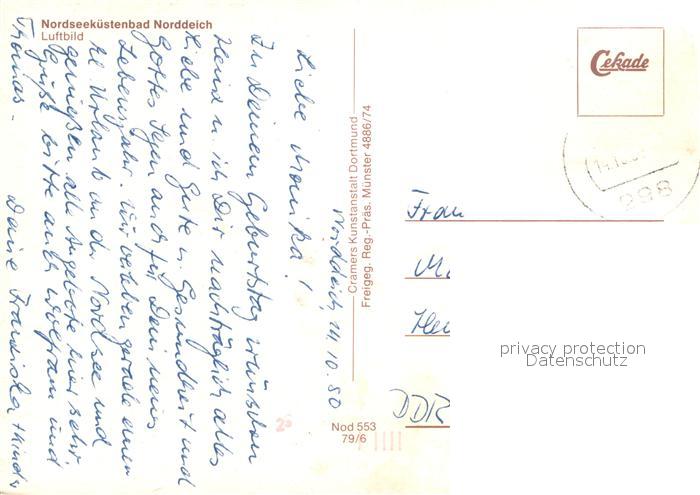 Nordseeküstenbad Norddeich
Luftbild
Norddeich, 14.10.80
Liebe Monika!
Zu Deinem Geburtstag wünschen
Heinz u. ich Dir nachträglich alles
Liebe und Gute u. Gesundheit und
Gottes Segen auch für Dein neues
Lebensjahr. Wir verleben gerade einen
kl. Urlaub an der Nordsee und
genießen alle Angebote hier sehr.
Grüße bitte auch Wolfram und
Thomas. Deine Franziska + Heinz
Cramers Kunstanstalt Dortmund
Freigeg. Reg.-Präs. Münster 4886/74
Nod 553
79/6
Cekade
298
Frau
DDR
privacy protection
Datenschutz